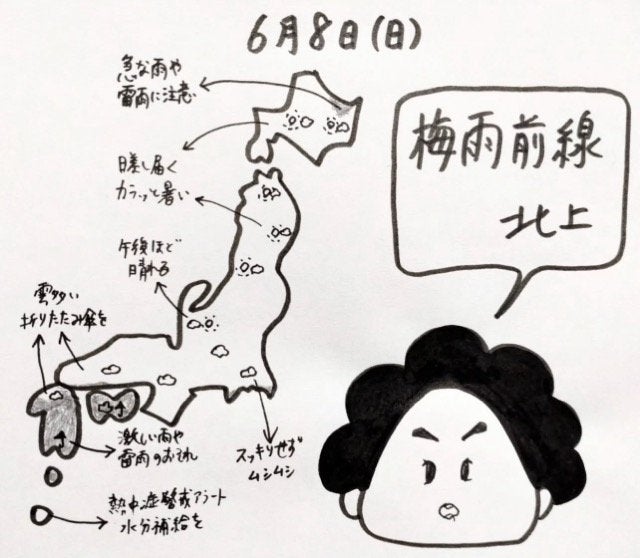 6月8日(日)
急な雨や
雷雨に注意
梅雨前線
北上
日差し届く
カラッと暑い
午後ほど
晴れる
雲多い
折りたたみ傘を
激しい雨や
雷雨のおそれ
スッキリせず
ムシムシ
熱中症警戒アラート
水分補給を